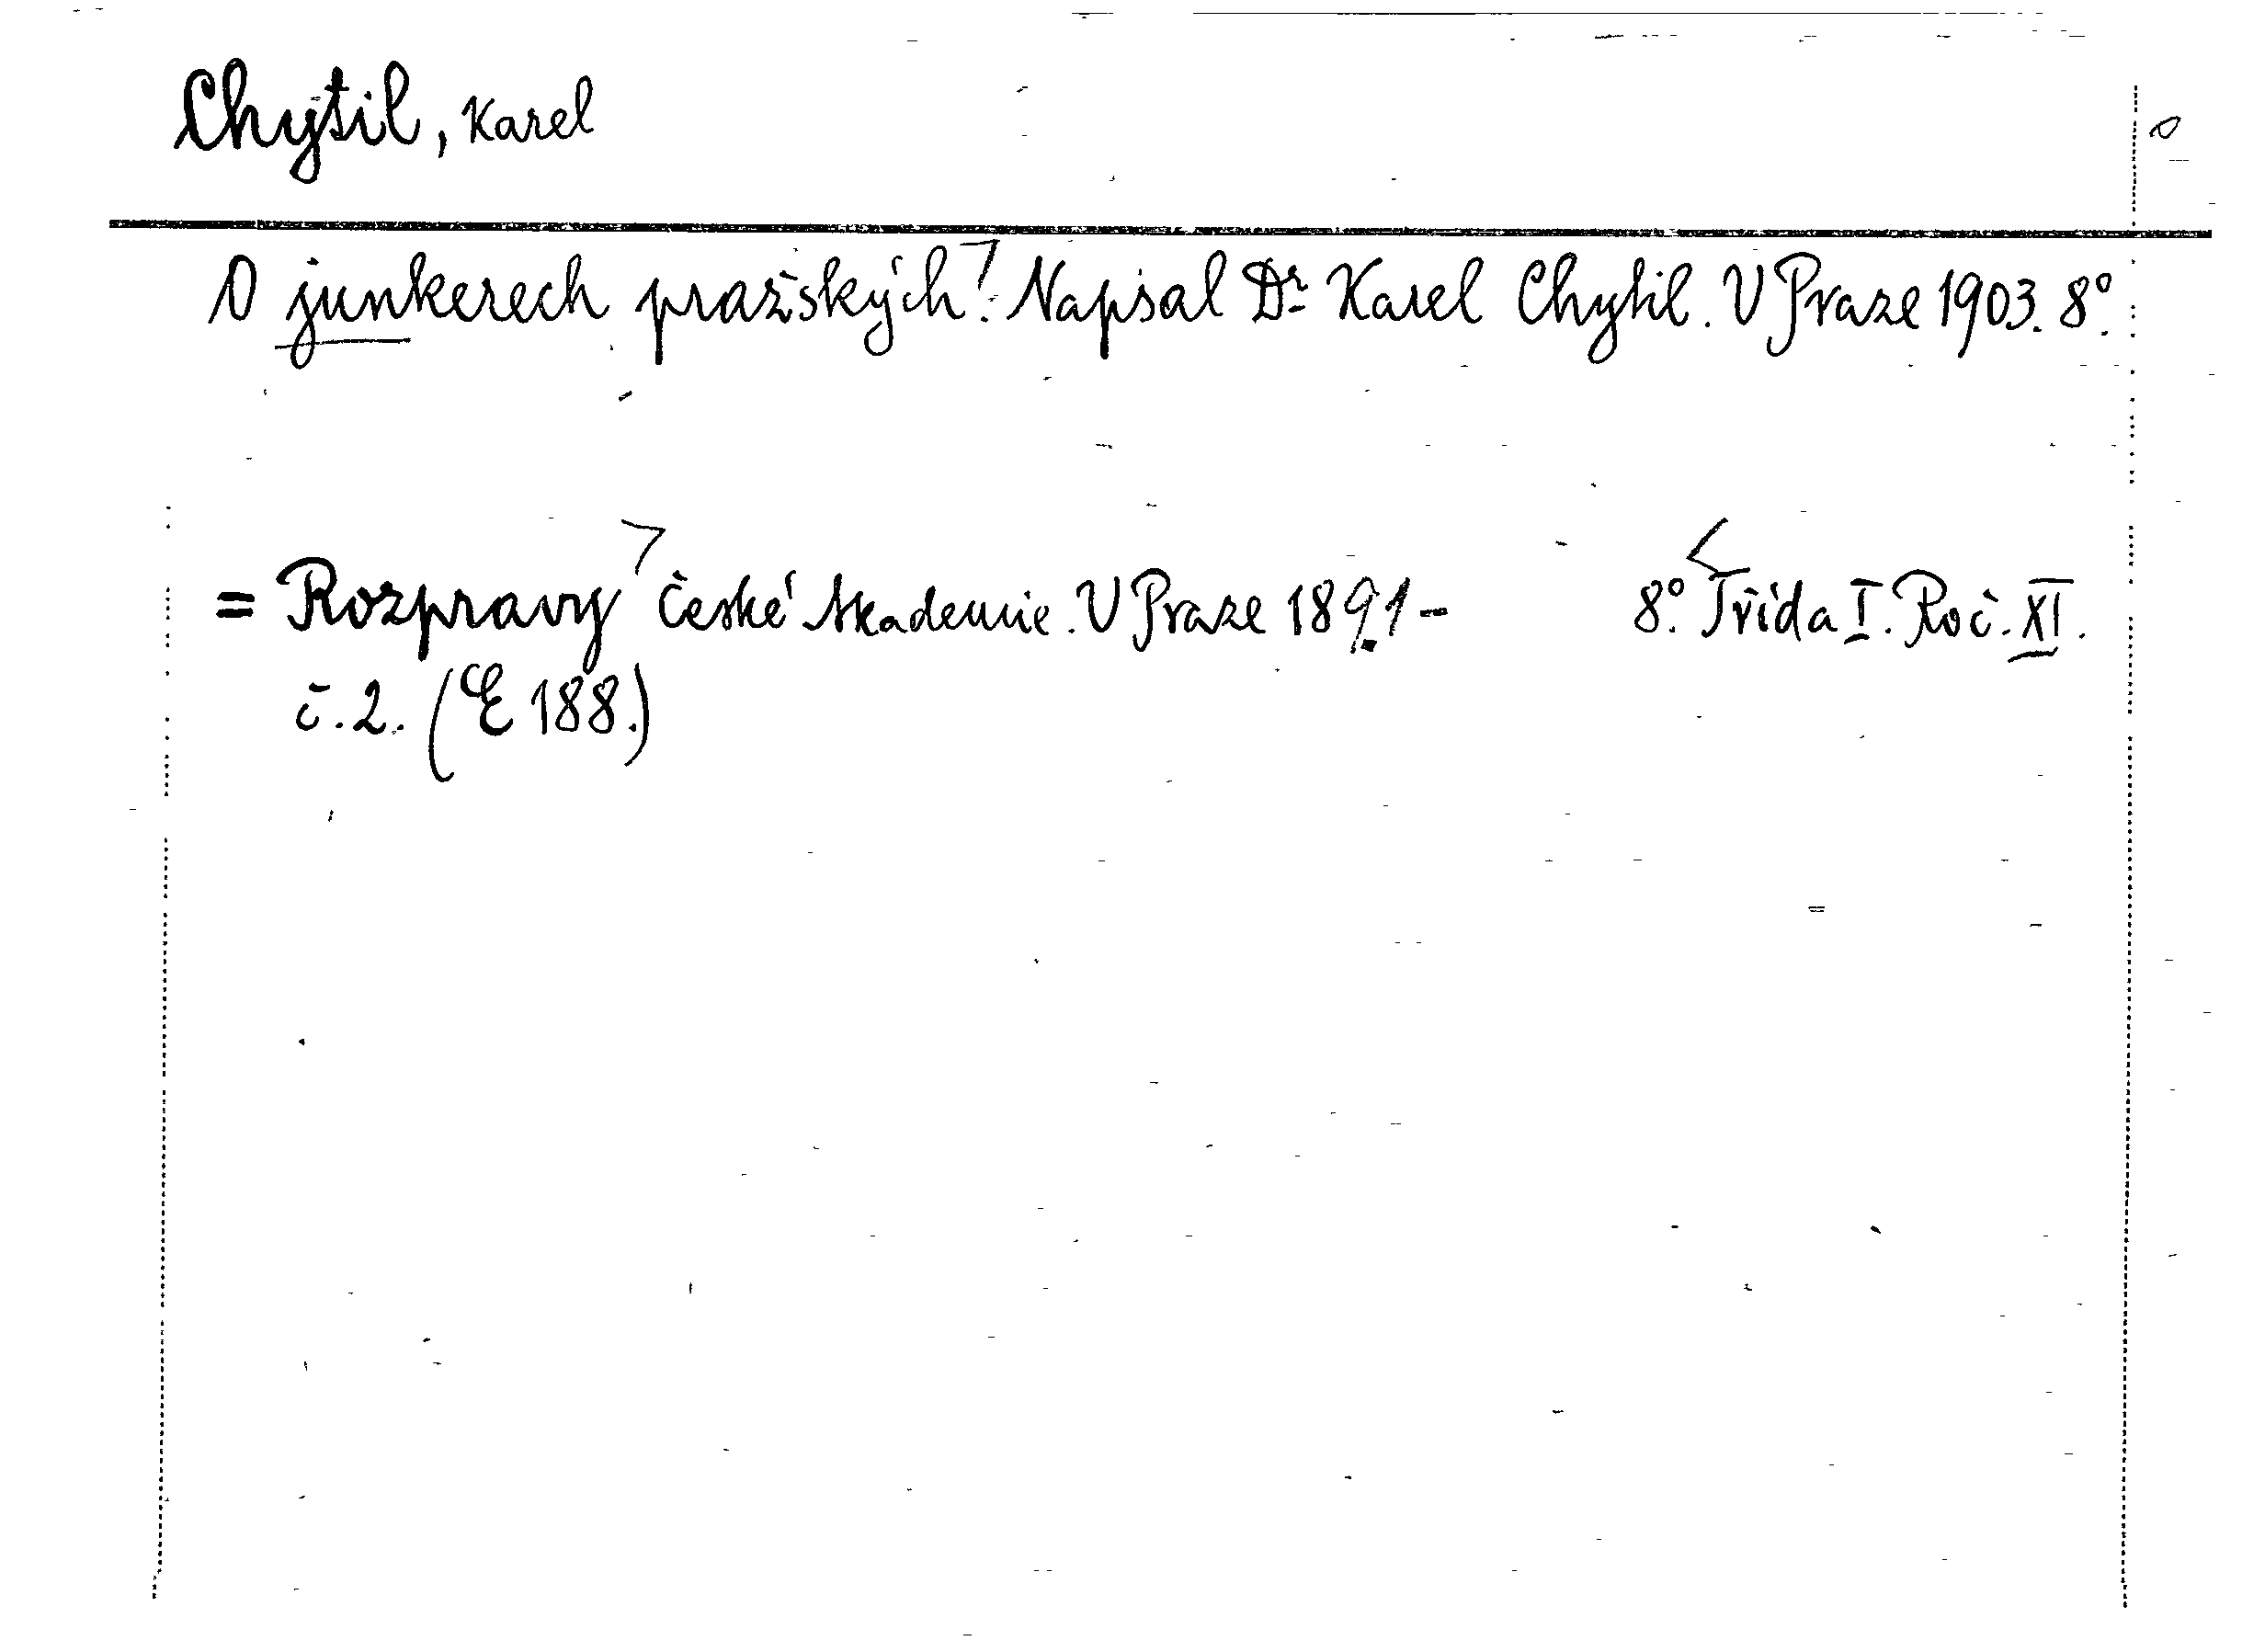 Chytil, Karel
O junkerech pražských. Napsal Dr. Karel Chytil. V Praze 1903. 8°.
= Rozpravy České Akademie. V Praze 1891- 8°. Třída I. Roč. XI.
č. 2. (E 188.)